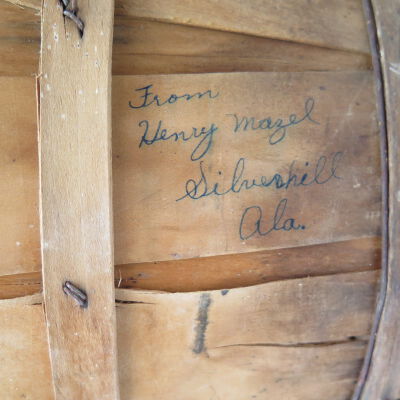 From
Henry Mazel
Silverhill
Ala.